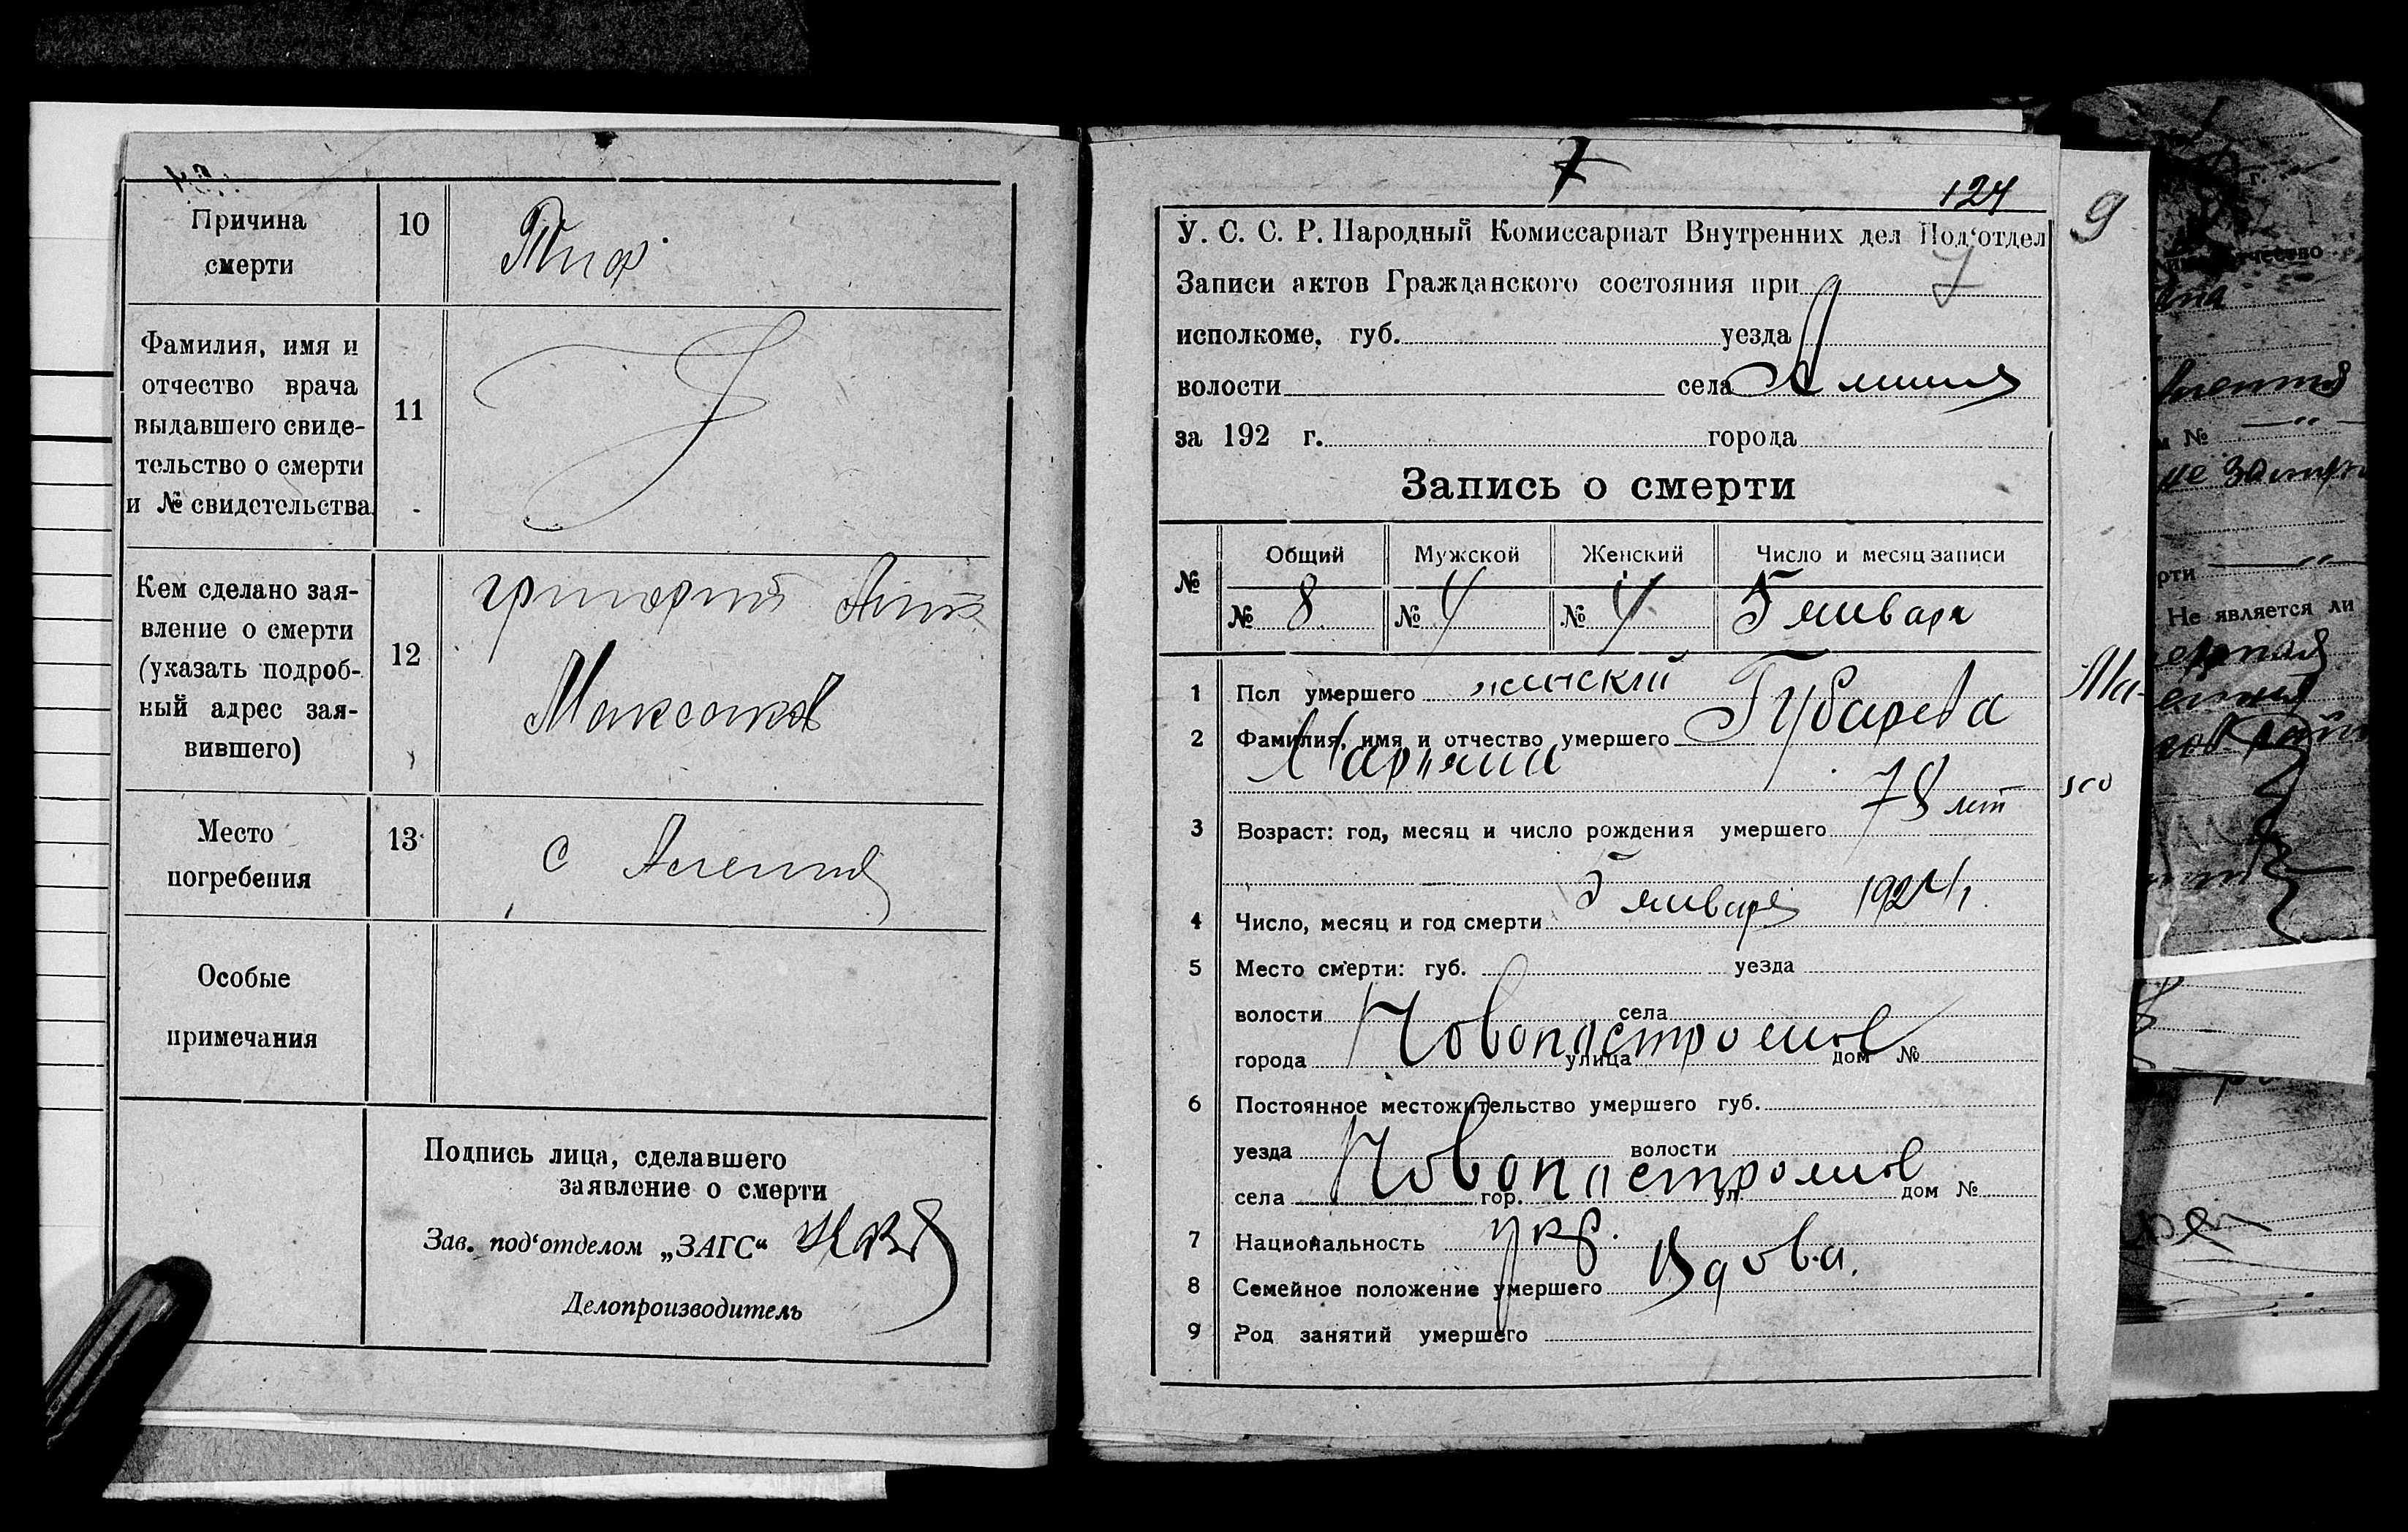 Причина
смерти
10
Тиф
Фамилия, имя и
отчество врача
выдавшего свиде-
тельство о смерти
и № свидетельства
11
Кем сделано зая-
вление о смерти
(указать подроб-
ный адрес зая-
вившего)
12
григорий
Максаков
Место
погребения
13
с
Особые
примечания
Подпись лица, сделавшего
заявление о смерти
Зав. под‘отделом „ЗАГС“
Делопроизводитель
7
124
У. С. С. Р. Народный Комиссариат Внутренних дел Под‘отдел
7
Записи актов Гражданского состояния при
исполкоме, губ. уезда
волости села
за 192 г. города
Запись о смерти
№ Общий Мужской Женский Число и месяц записи
№ 8 № 4 № 4 5 января
1 Пол умершего женский
2 Фамилия, имя и отчество умершего Губарева
3 Возраст: год, месяц и число рождения умершего 78 лет
4 Число, месяц и год смерти 5 января 1924
5 Место смерти: губ. уезда
волости села
города улица дом №
6 Постоянное местожительство умершего губ.
уезда волости
села гор. ул дом №
7 Национальность укр.
8 Семейное положение умершего Вдова.
9 Род занятий умершего
9
отчество
№
рти
Не является ли